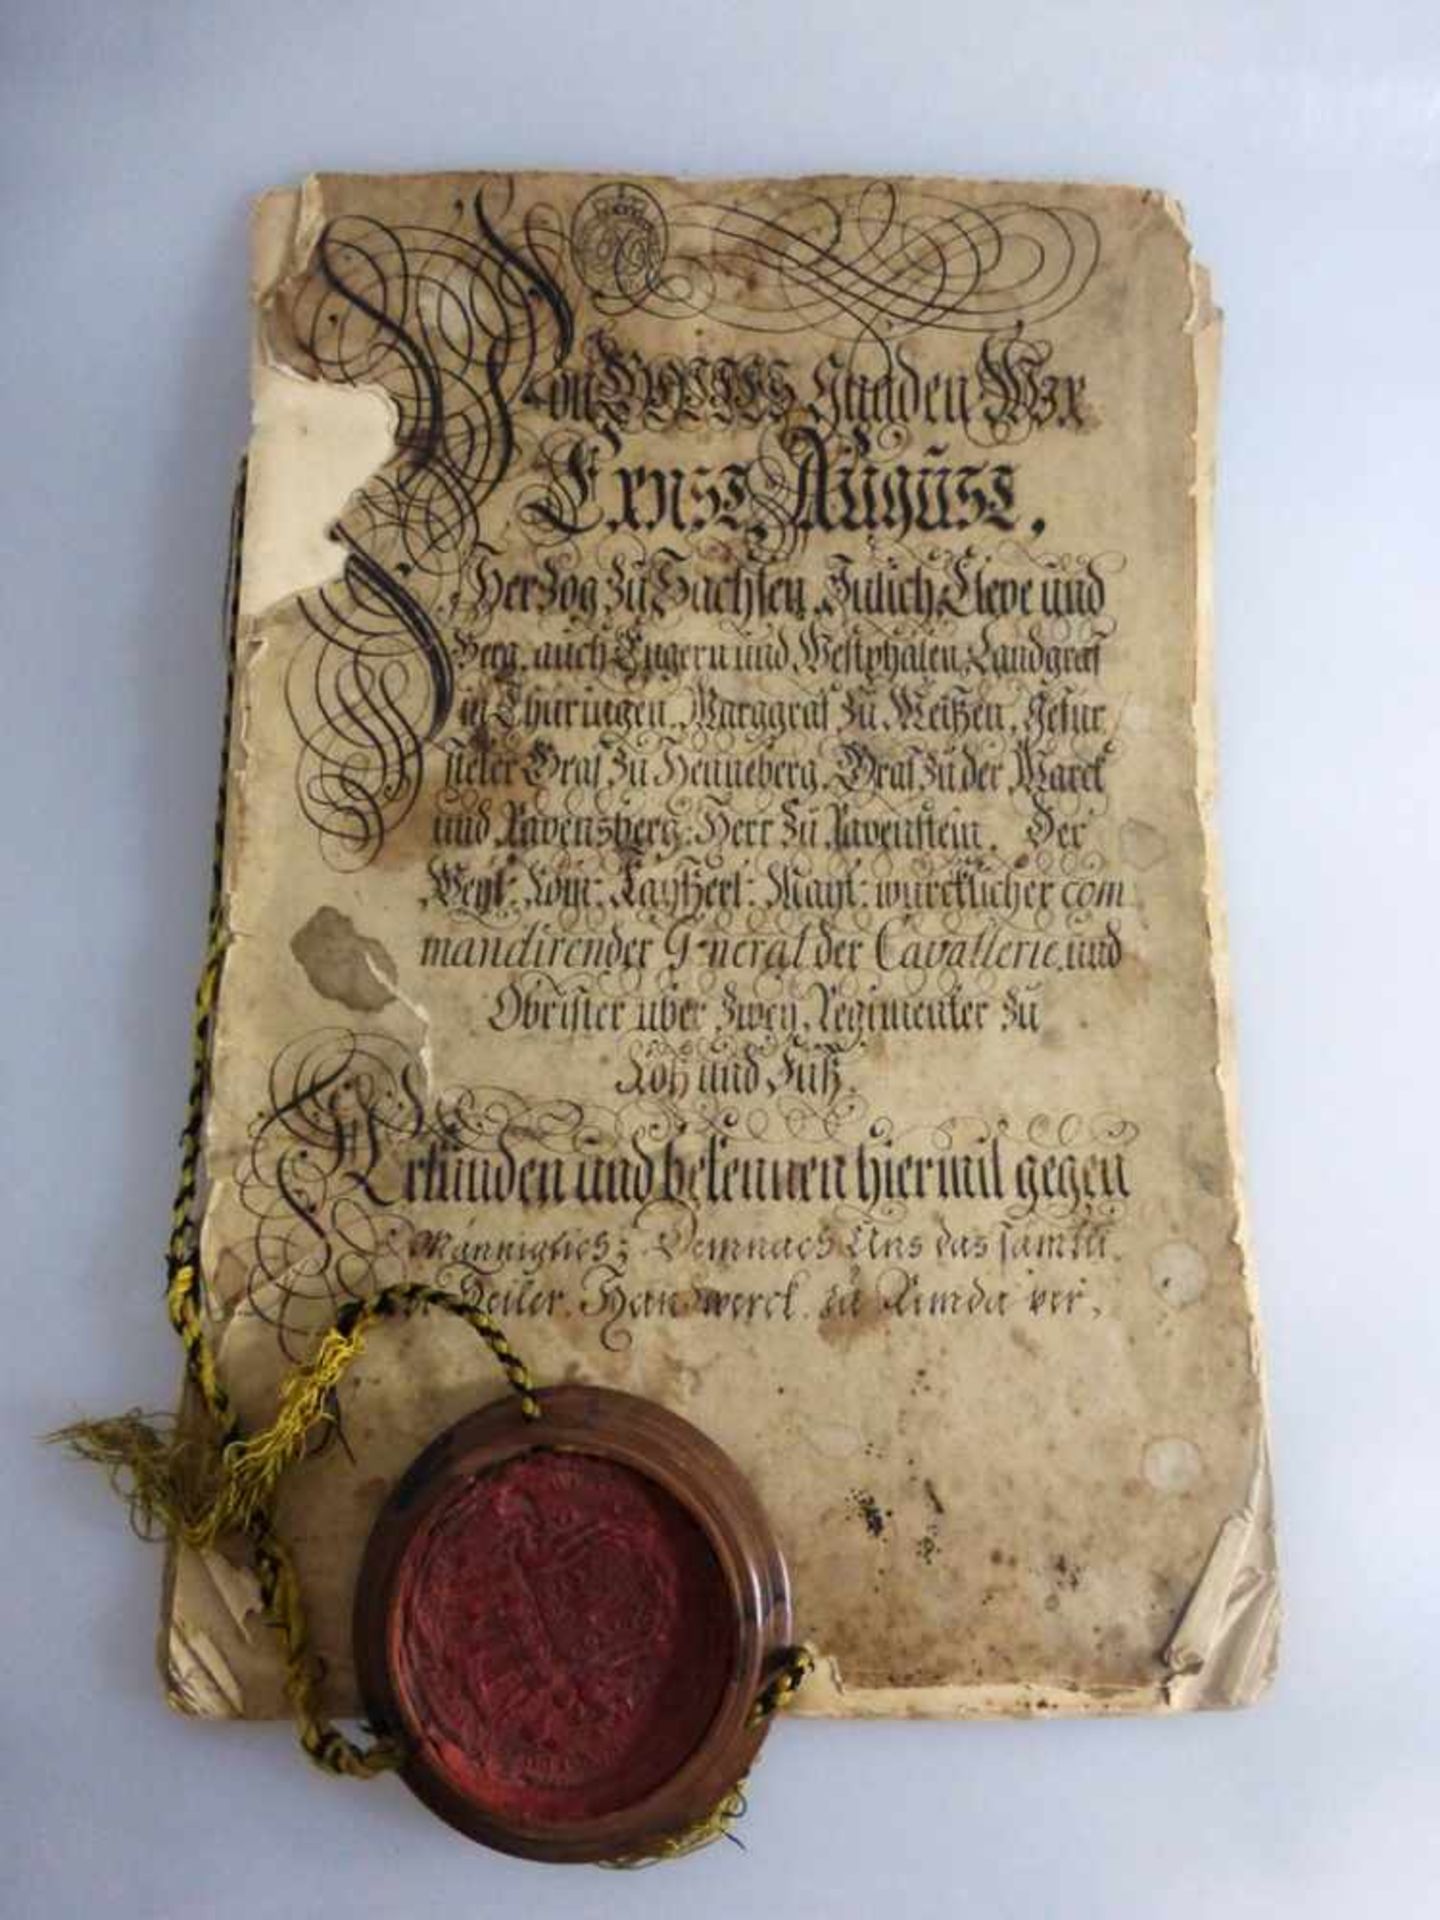 Von GOTTES Gnaden Wir
Ernst August,
Herzog zu Sachsen, Jülich, Cleve und
Berg, auch Engern und Westphalen, Landgraf
in Thüringen, Marggraf zu Meißen, Gefür
steter Graf zu Henneberg, Graf zu der Marck
und Ravensberg, Herr zu Ravenstein. Der
Röm: Kayßerl: Mayt: würcklicher com
mandirender General der Cavallerie, und
Obrister über zwey Regimenter zu
Roß und Fuß.
Urkunden und bekennen hiermit gegen
Männiglich; Demnach Uns das sämtl.
Seiler Handwerck zu Remda ver,